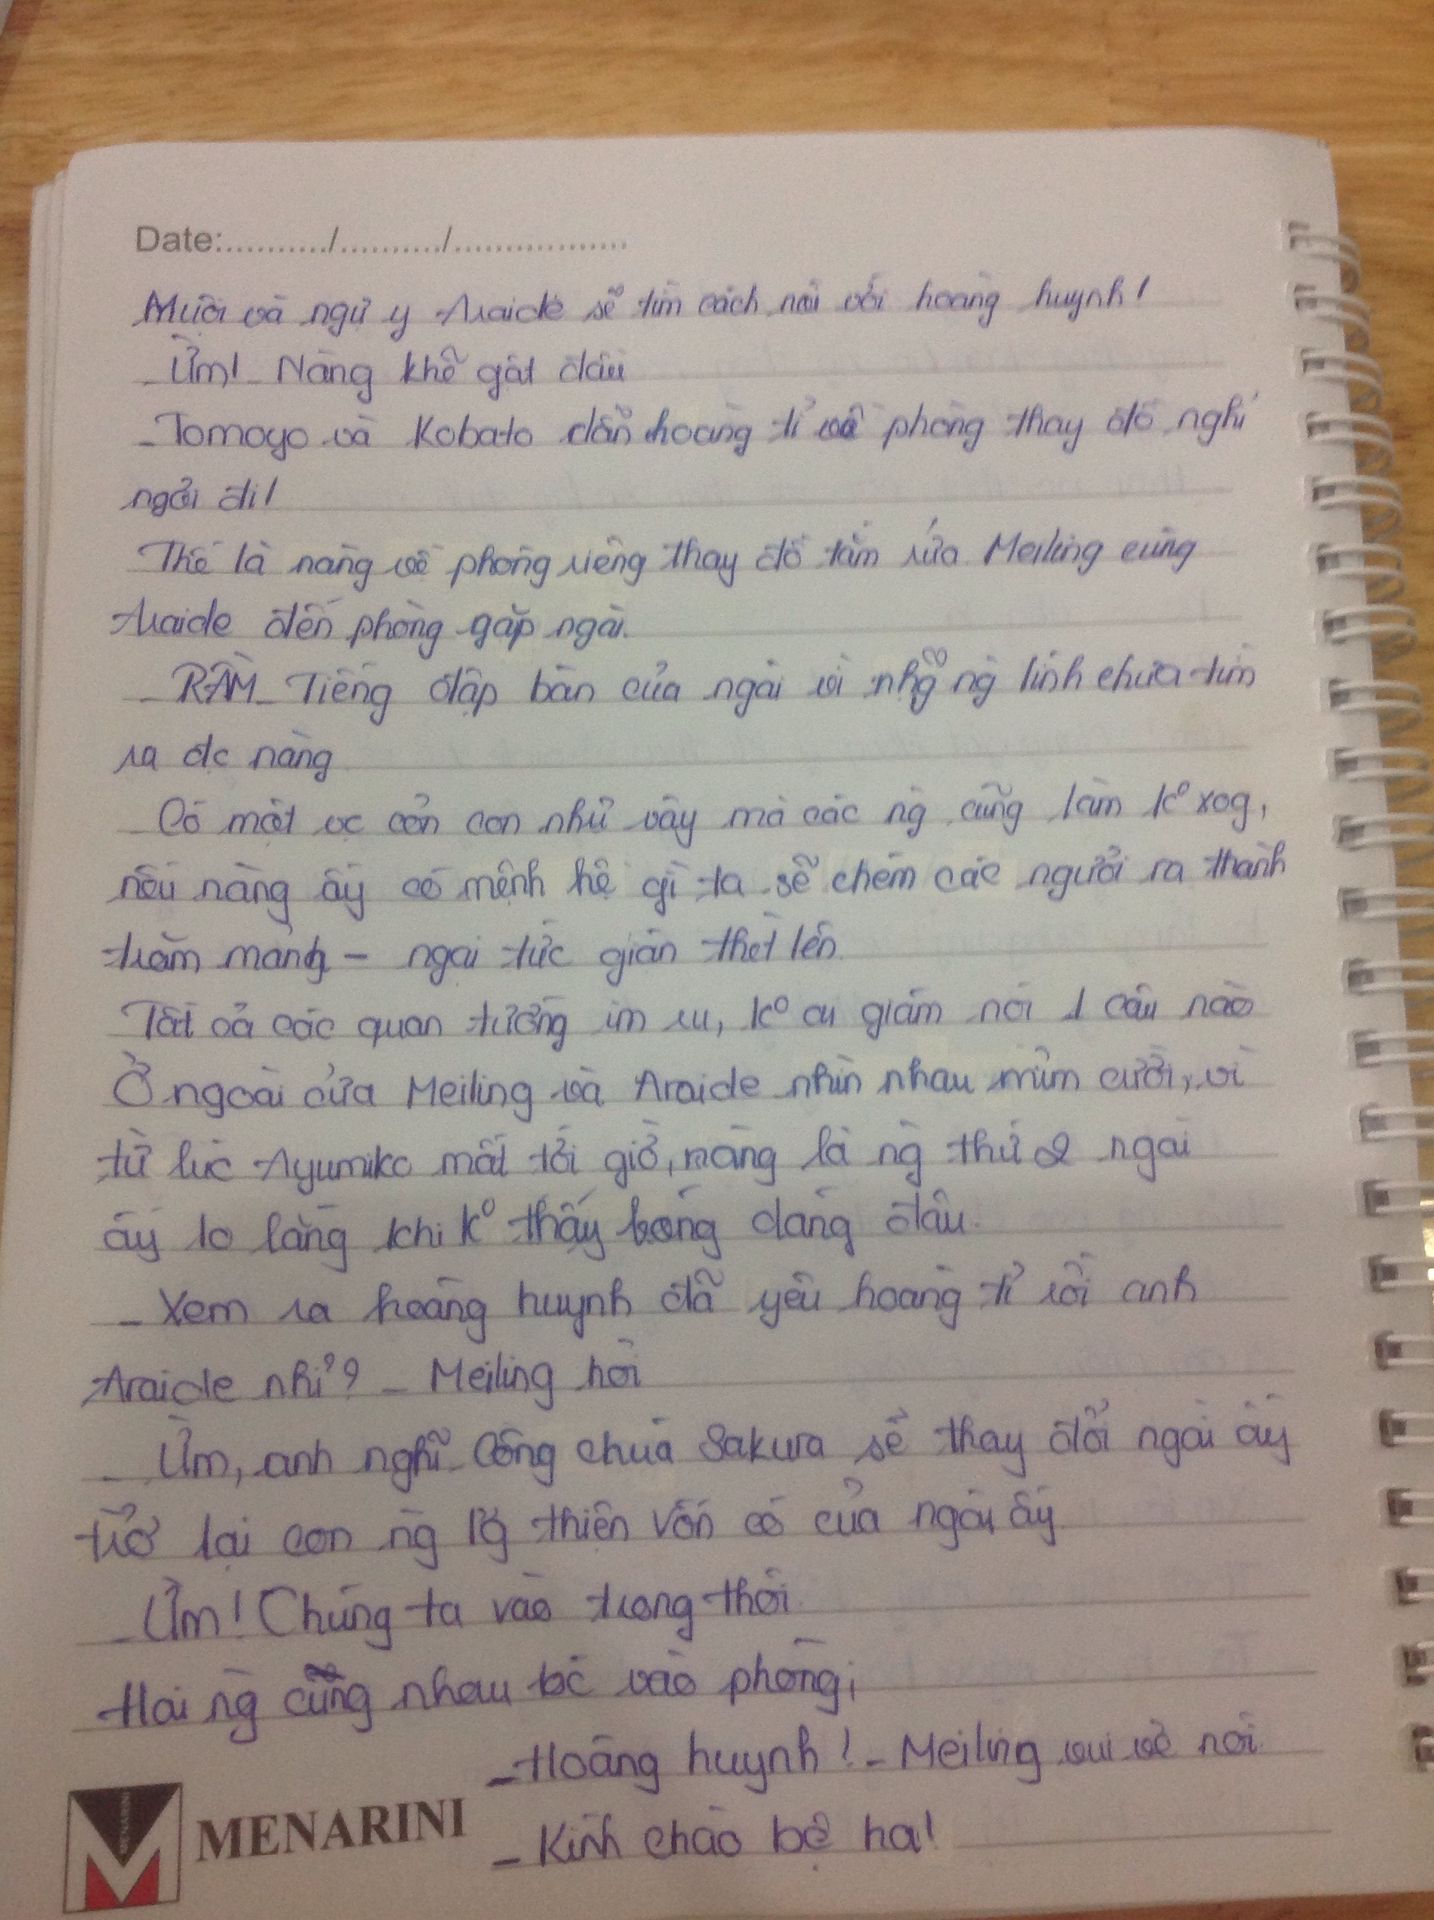 Date:........../........../.................
Muội và ngự y Araide sẽ tìm cách nói với hoàng huynh!
_ Ừm! _ Nàng khẽ gật đầu
_ Tomoyo và Kobato dẫn hoàng tỉ về phòng thay đồ nghỉ
ngơi đi!
Thế là nàng về phòng riêng thay đồ tắm rửa. Meiling cùng
Araide đến phòng gặp ngài.
_ RẦM _ Tiếng đập bàn của ngài vì những ng lính chưa tìm
ra đc nàng
_ Có một vc cỏn con như vậy mà các ng cũng làm k° xog,
nếu nàng ấy có mệnh hệ gì ta sẽ chém các người ra thành
trăm mảnh – ngài tức giận thét lên.
Tất cả các quan tướng im ru, k° ai giám nói 1 câu nào
Ở ngoài cửa Meiling và Araide nhìn nhau mỉm cười, vì
từ lúc Ayumiko mất tới giờ, nàng là ng thứ 2 ngài
ấy lo lắng khi k° thấy bóng dáng đâu.
_ Xem ra hoàng huynh đã yêu hoàng tỉ rồi anh
Araide nhỉ? _ Meiling hỏi
_ Ừm, anh nghĩ công chúa Sakura sẽ thay đổi ngài ấy
trở lại con ng lg thiện vốn có của ngài ấy
_ Ừm! Chúng ta vào trong thôi.
Hai ng cùng nhau bc vào phòng;
_ Hoàng huynh! _ Meiling vui vẻ nói.
_ Kính chào bệ hạ!
MENARINI